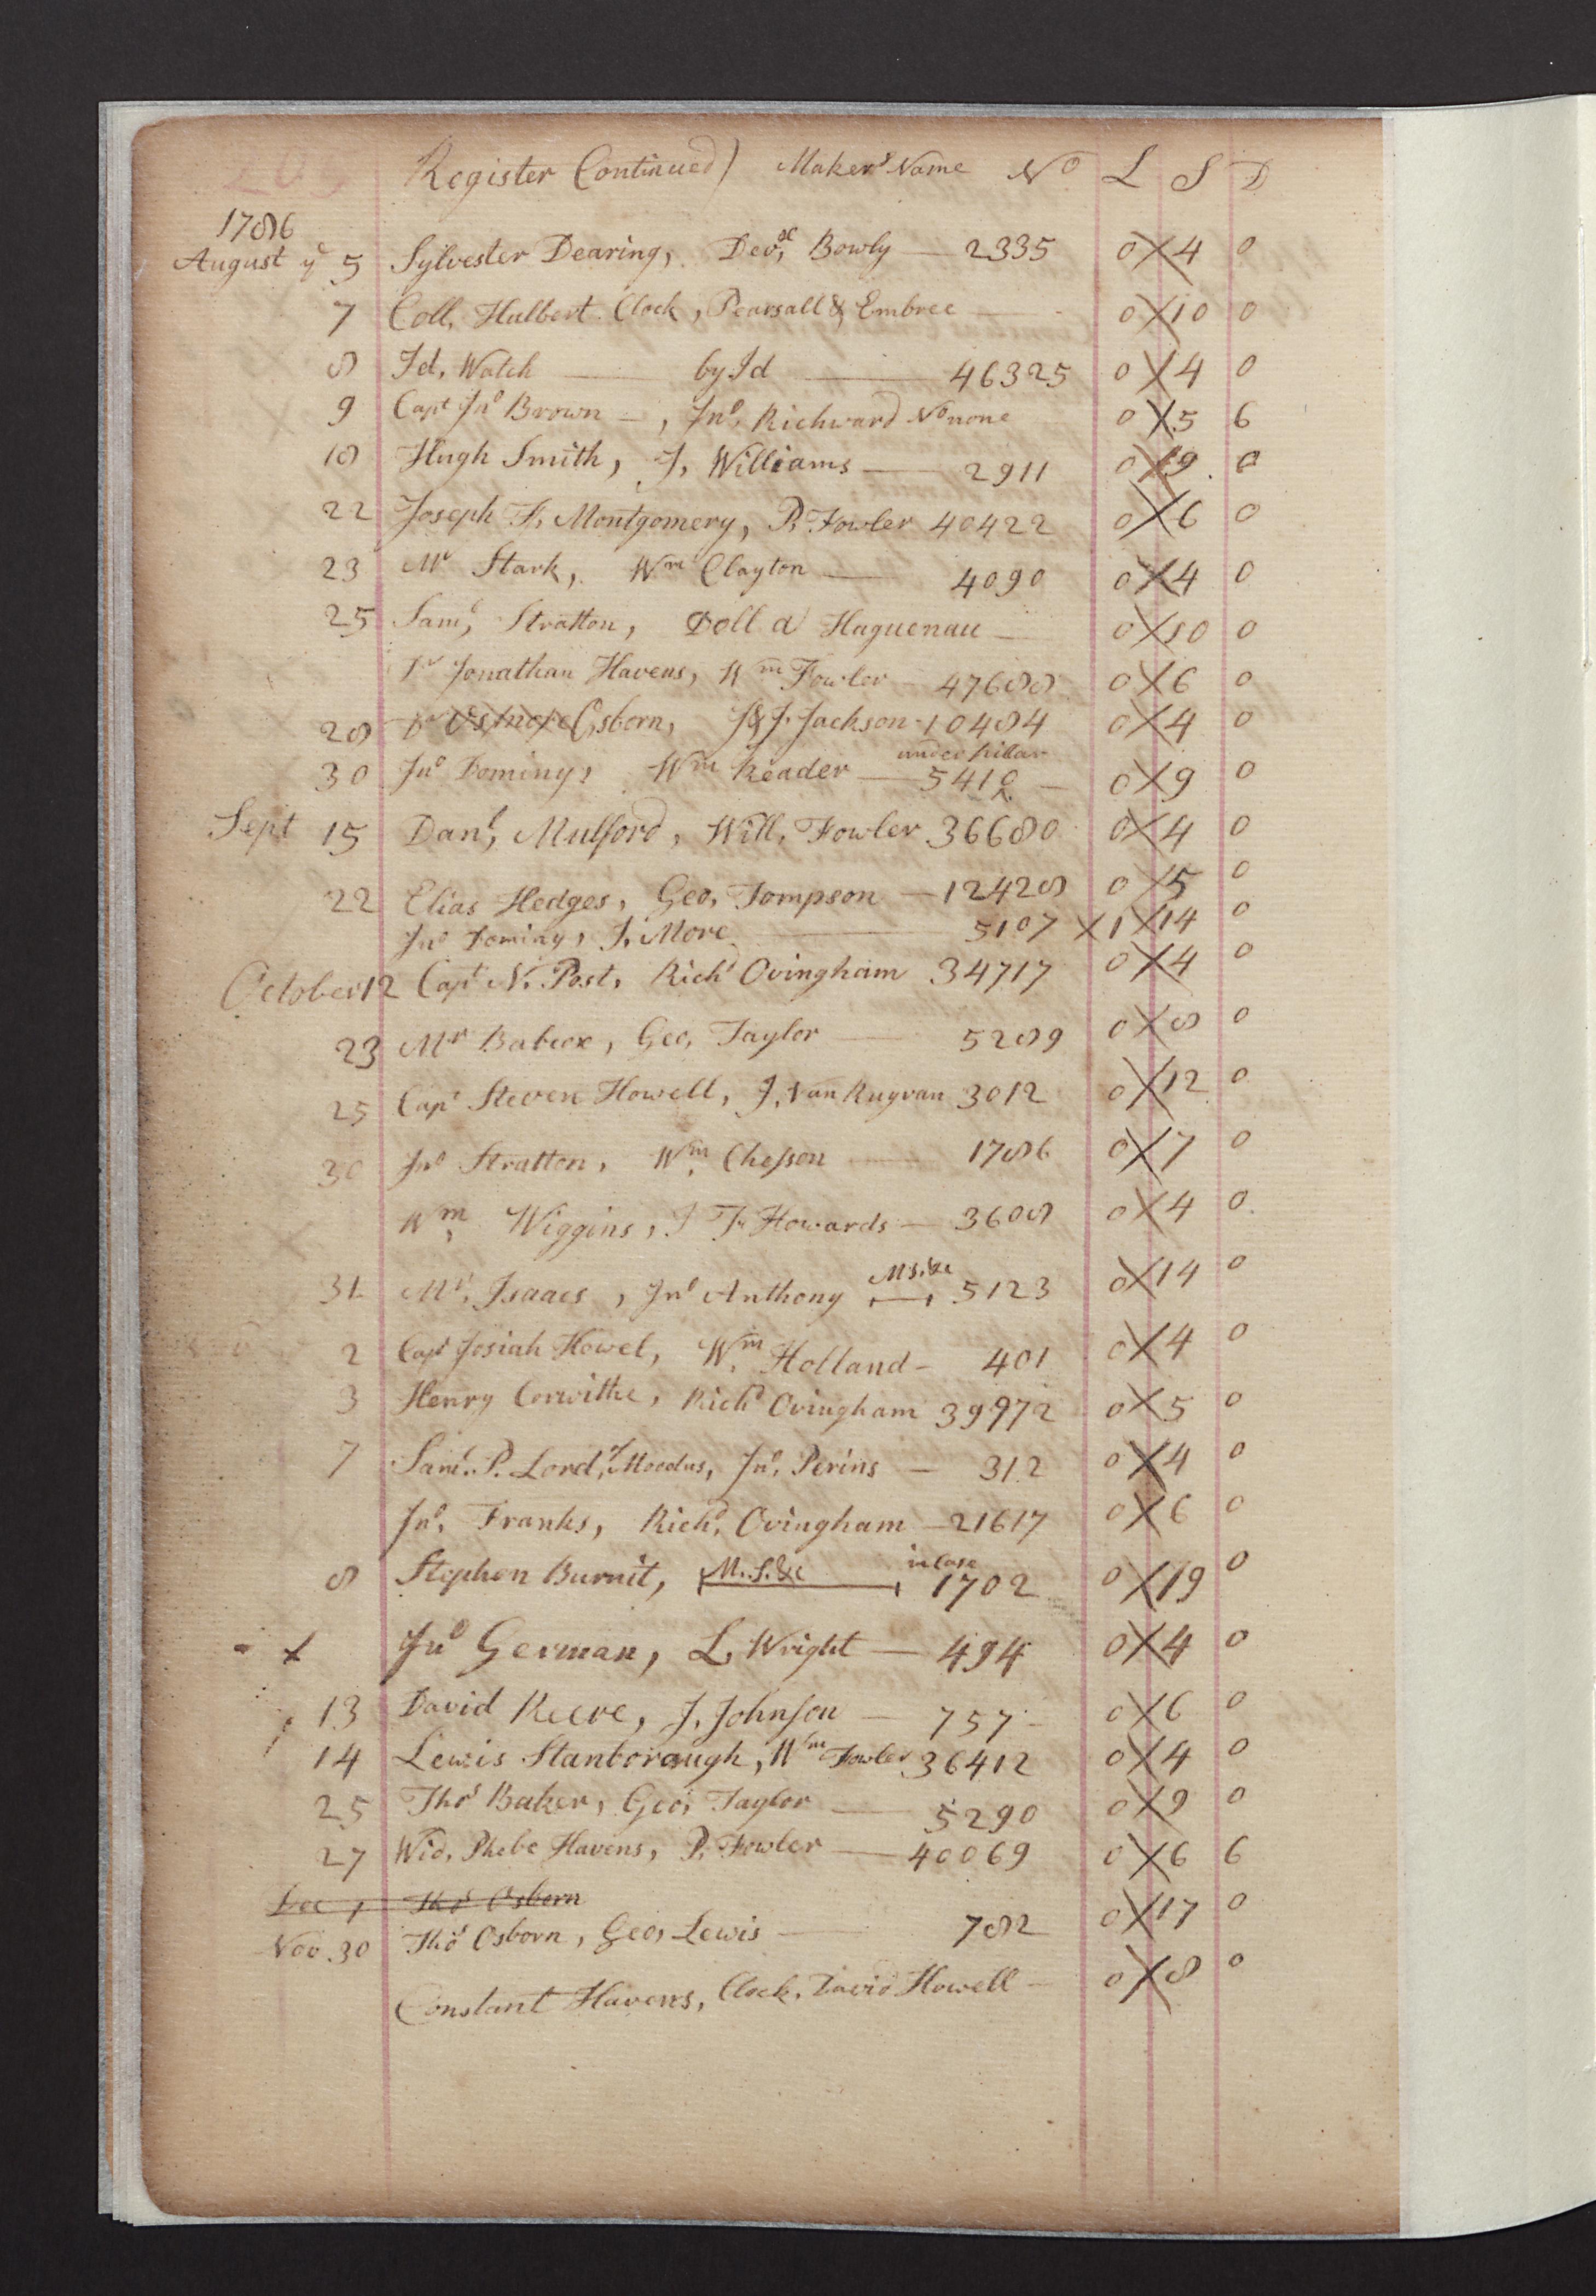 Register Continued) Maker's Name No L S D
1786
August ye 5 Sylvester Dearing, Devx. Bowly — 2335 0 X 4 0
7 Coll, Hulbert. Clock, Pearsall & Embree — 0 X 10 0
8 Id, Watch — by Id — 46325 0 X 4 0
9 Capt Jno Brown —, Jno, Richward No none 0 X 5 6
18 Hugh Smith, J, Williams — 2911 0 X 9 0
22 Joseph F, Montgomery, P, Fowler 40422 0 X 6 0
23 Mr Stark, Wm Clayton — 4090 0 X 4 0
25 Saml, Stratton, Doll a Haguenau — 0 X 10 0
Jonathan Havens, Wm Fowler — 47688 0 X 6 0
28 Osborn, J & J. Jackson - 10484 0 X 4 0
under Pillar
30 Jno Dominy, Wm Reader — 5410 — 0 X 9 0
Sept 15 Danl, Mulford, Will, Fowler 36680 0 X 4 0
22 Elias Hedges, Geo, Tompson — 12428 0 X 5 0
Jno Dominy, J, More — 5107 X 1 X 14 0
October 12 Capt N. Post, Richd Ovingham 34717 0 X 4 0
23 Mr Babcox, Geo, Taylor — 5289 0 X 8 0
25 Capt Steven Howell, J, Van Rugvan 3012 0 X 12 0
30 Jno Stratton, Wm Chesson — 1786 0 X 7 0
Wm, Wiggins, J Howards — 3608 0 X 4 0
31 Mr, Isaacs, Jno Anthony M S. &c 5123 0 X 14 0
2 Capt Josiah Howel, Wm, Holland - 401 0 X 4 0
3 Henry Corwithe, Richd Ovingham 39972 0 X 5 0
7 Saml. P. Lord, of Moodus, Jno, Perins — 312 0 X 4 0
Jno, Franks, Richd, Ovingham — 21617 0 X 6 0
8 Stephen Burnit, M. S. &c in Case 1702 0 X 19 0
- x Jno German, L, Wright — 494 0 X 4 0
13 David Reeve, J, Johnson — 757 - 0 X 6 0
14 Lewis Stanborough, Wm Fowler 36412 0 X 4 0
25 Thos Baker, Geo, Taylor — 5290 0 X 9 0
27 Wid, Phebe Havens, P, Fowler — 40069 0 X 6 6
Dec 1 Thos Osborn
Nov. 30 Thos Osborn, Geo, Lewis — 782 0 X 17 0
Constant Havens, Clock, David Howell — 0 X 8 0